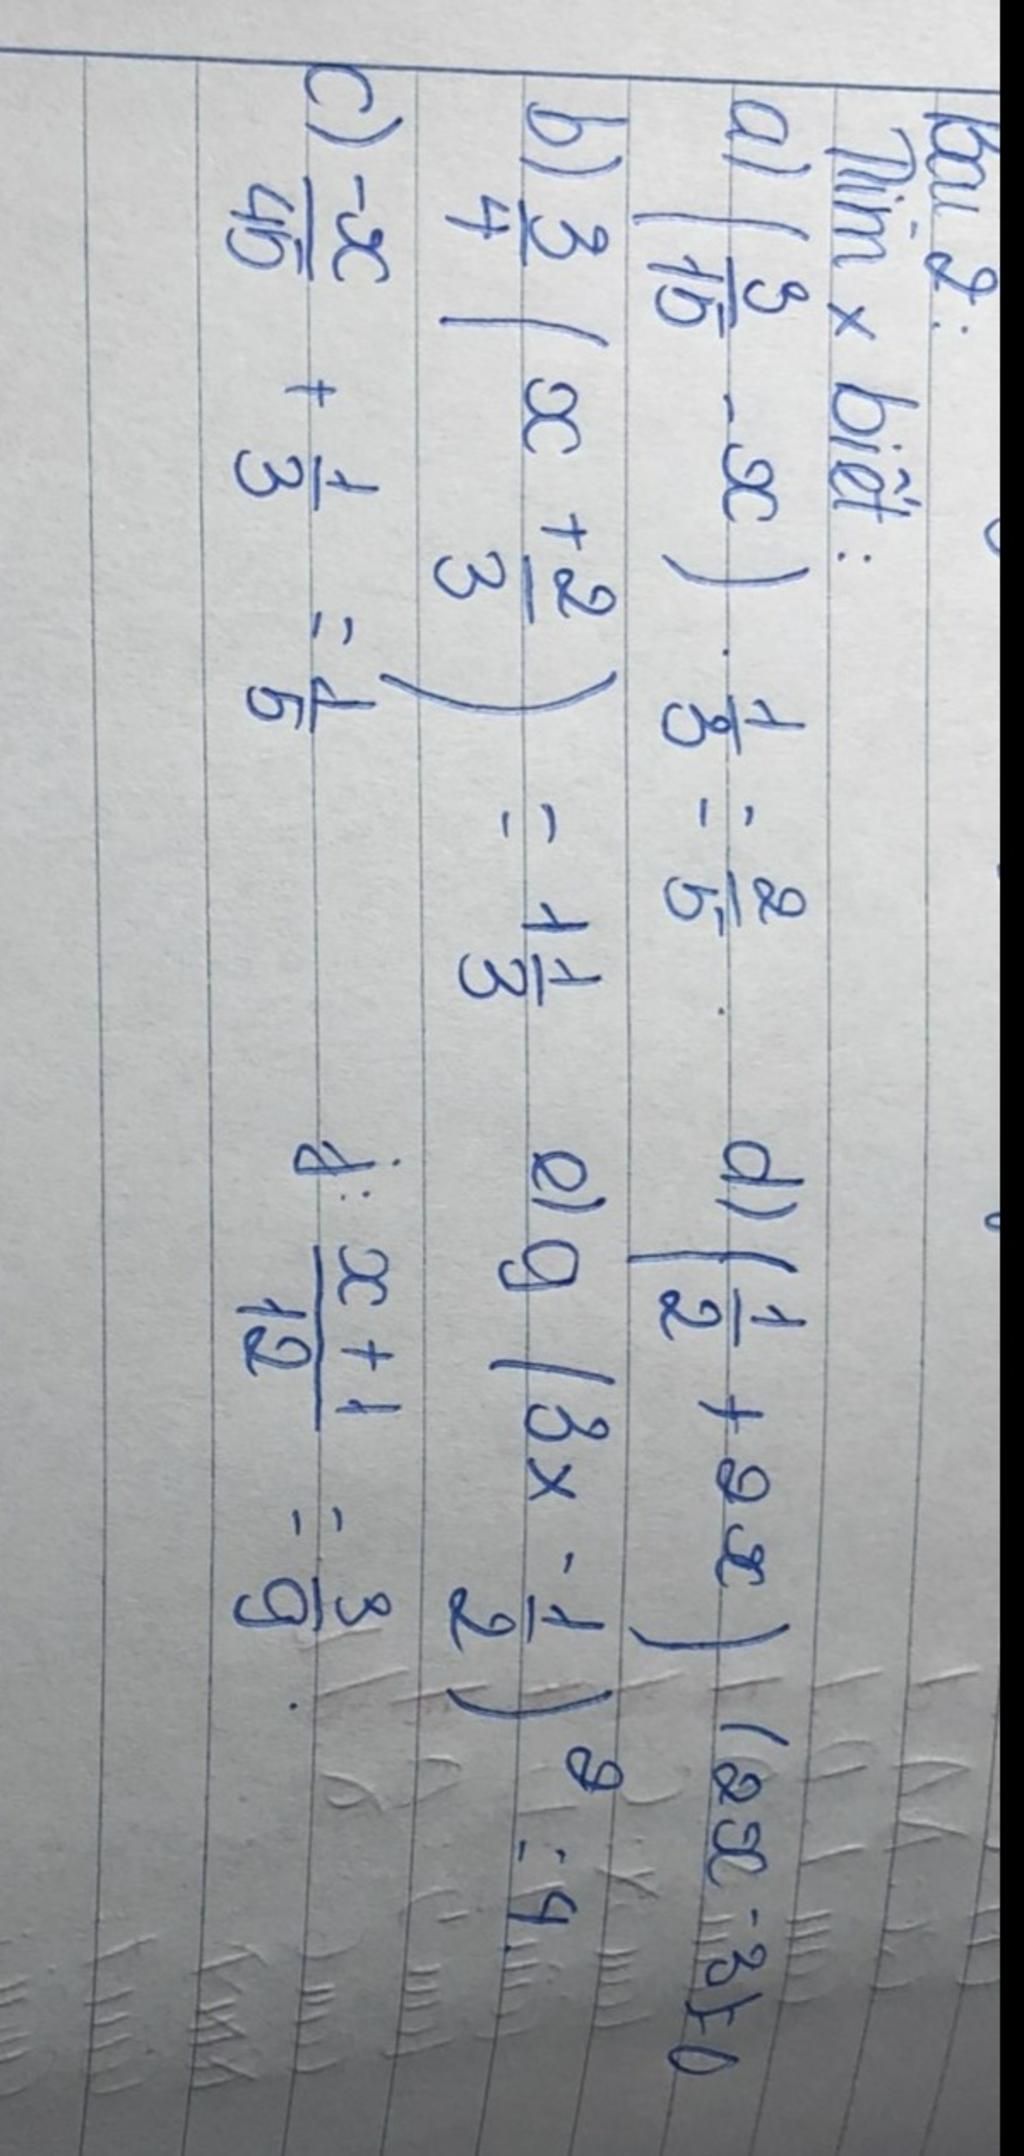 Bài 2:
Tìm x biết:
a) (3/15 - x) . 1/3 = 2/5 .
d) (1/2 + 2x) (2x - 3) = 0
b) 3/4 (x + 2/3) = 1 1/3
e) 9 (3x - 1/2)² = 4.
c) -x/45 + 1/3 = 1/5
f: x + 1/12 = 3/9 .